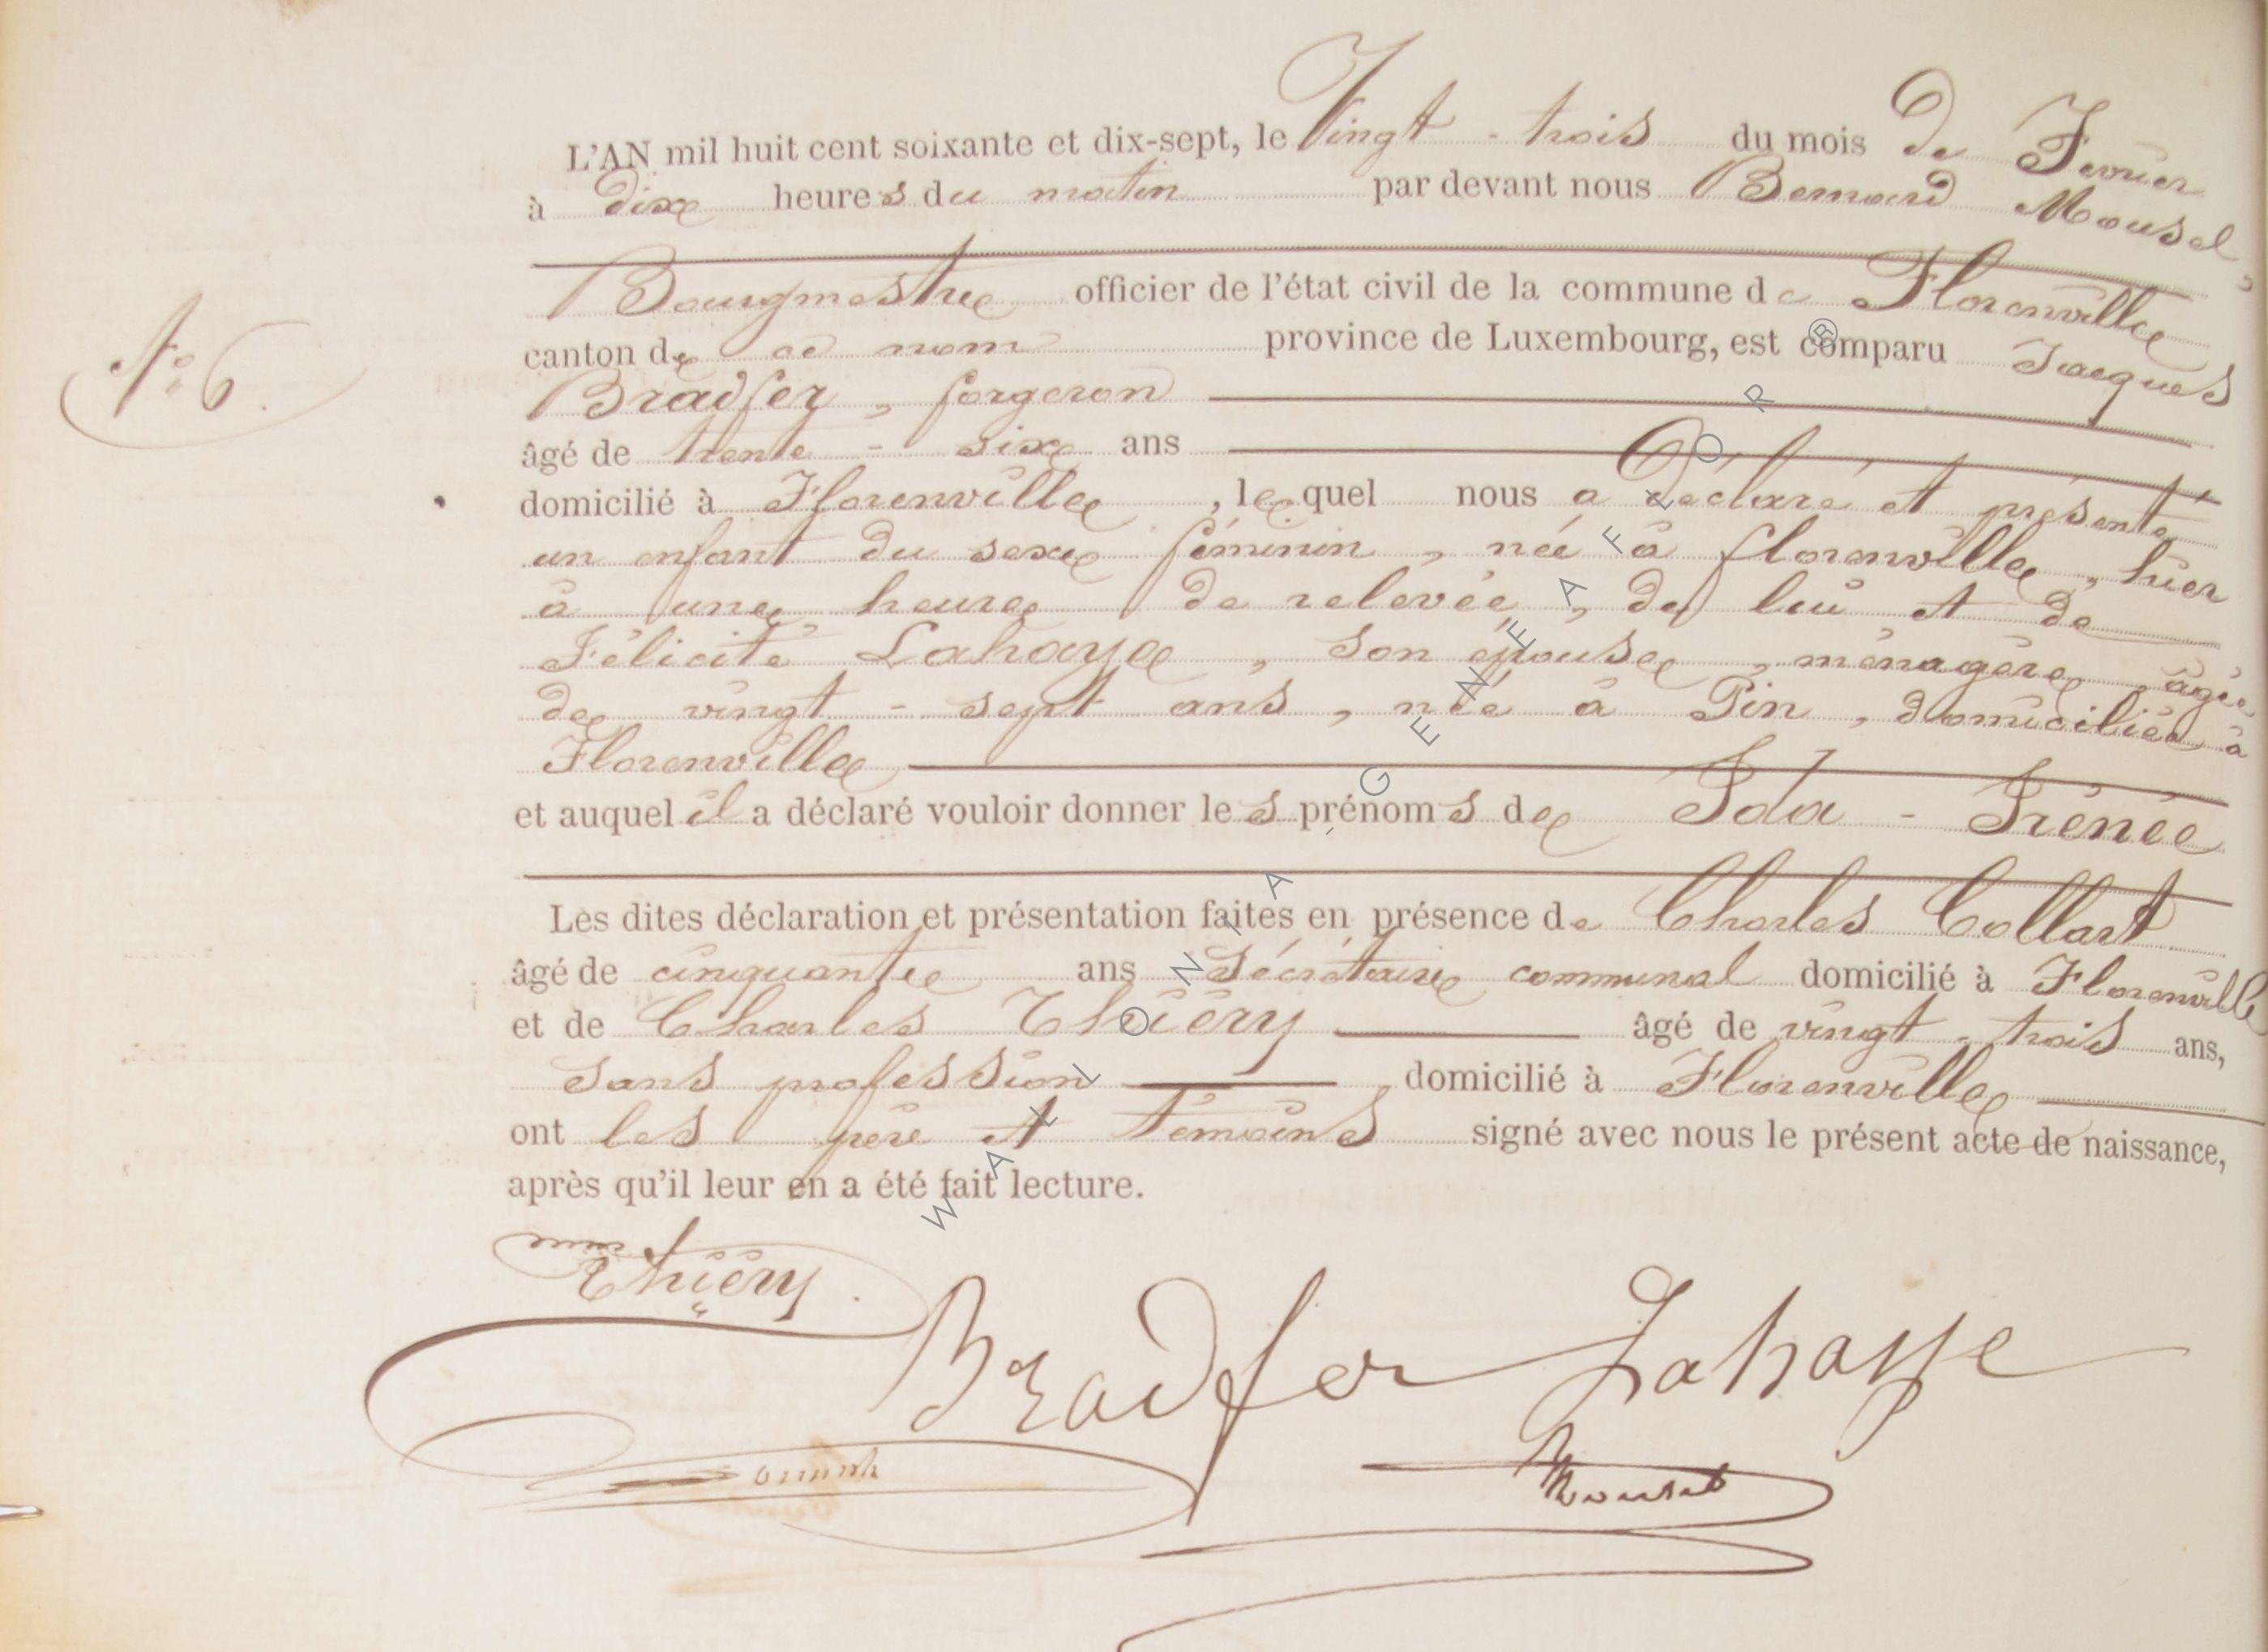 L'AN mil huit cent soixante et dix-sept, le Vingt - trois du mois de
à dix heures du matin par devant nous Bernard Mousel,
Bourgmestre officier de l'état civil de la commune de Florenville
canton de ce nom province de Luxembourg, est comparu Jacques
N° 6
Bradfer, forgeron
âgé de trente - six ans
domicilié à Florenville, lequel nous a déclaré et présenté
un enfant du sexe féminin, née à florenville, hier
à une heure de relevée, de lui et de
Félicité Lahaye, son épouse, ménagère, âgée
de vingt - sept ans, née à Pin, domiciliée à
Florenville
et auquel il a déclaré vouloir donner les prénoms de Ida - Irénée
Les dites déclaration et présentation faites en présence de Charles Collart
âgé de cinquante ans Sécrétaire communal domicilié à Florenville
et de Charles Thiéry âgé de vingt - trois ans,
sans profession, domicilié à Florenville
ont les père et témoins signé avec nous le présent acte de naissance,
après qu'il leur en a été fait lecture.
Thiéry
Bradfer Lahaye
Mousel
WALLONIA - GENEAFLOR ®